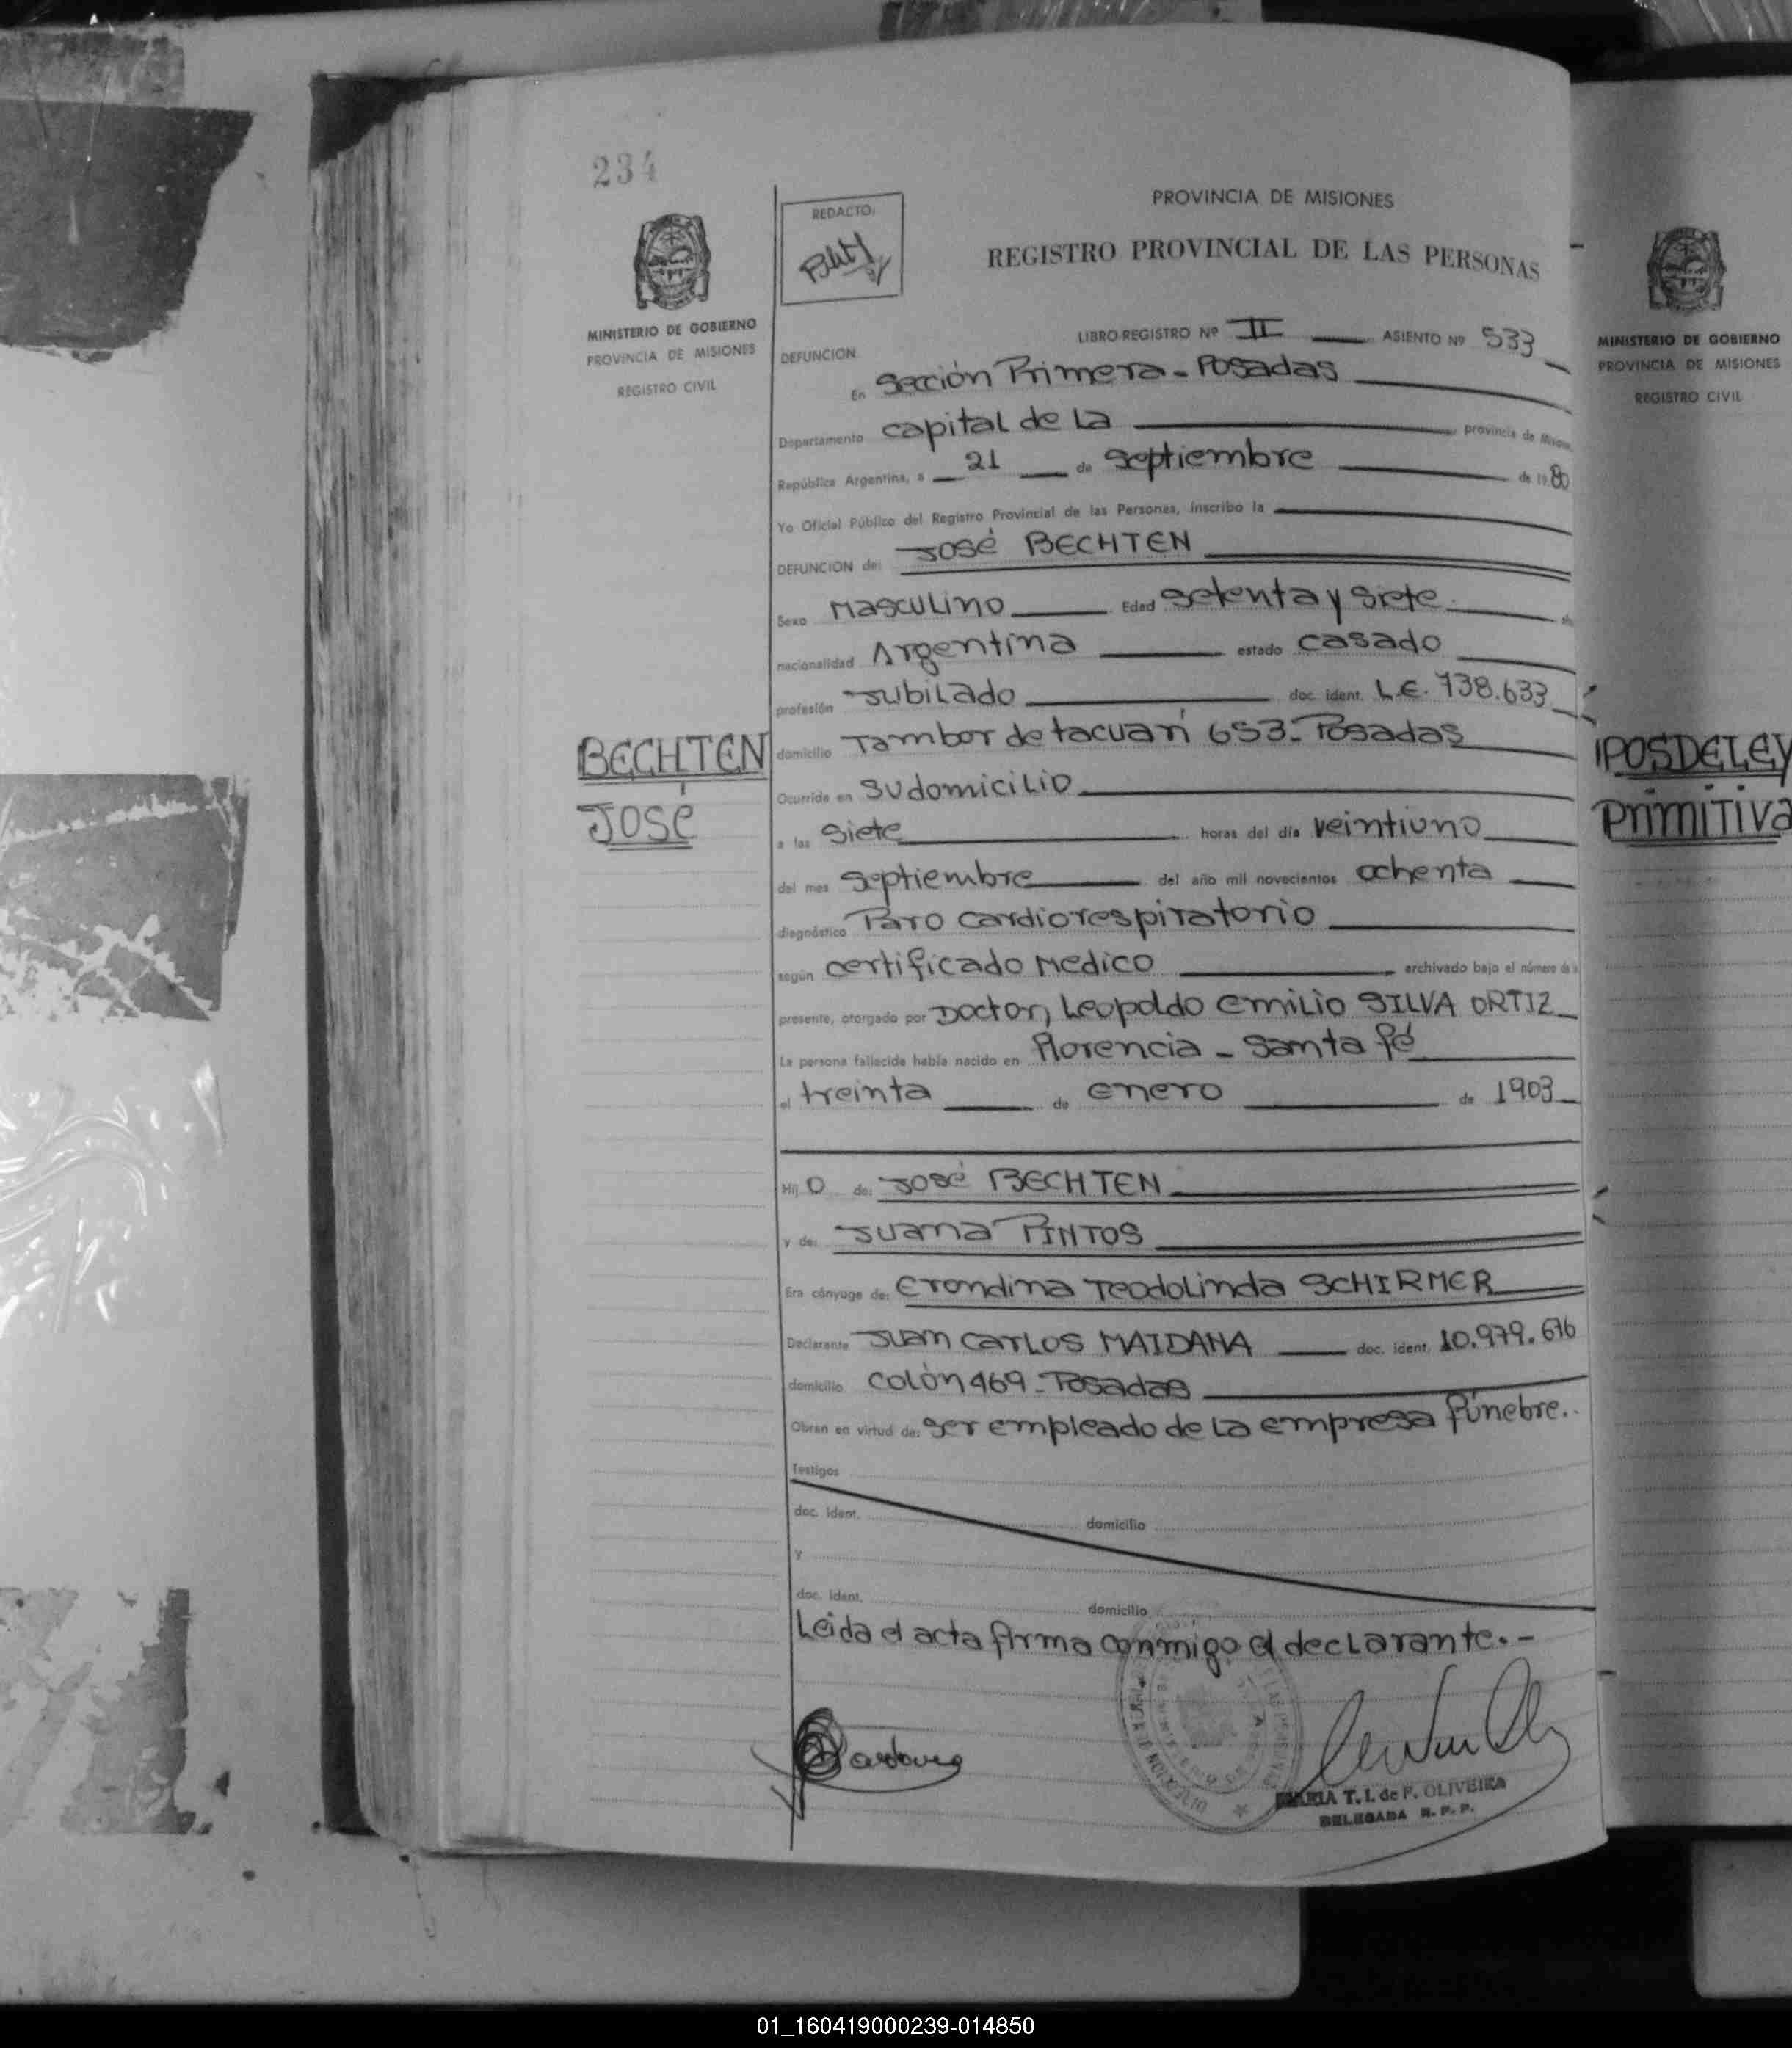 234
MINISTERIO DE GOBIERNO
PROVINCIA DE MISIONES
REGISTRO CIVIL
BECHTEN
JOSÉ
REDACTO:
PROVINCIA DE MISIONES
REGISTRO PROVINCIAL DE LAS PERSONAS
LIBRO-REGISTRO Nº II ASIENTO Nº 533
DEFUNCION
En Sección Primera - Posadas
Departamento capital de la provincia de
República Argentina, a 21 de septiembre de 1980
Yo Oficial Público del Registro Provincial de las Personas, inscribo la
DEFUNCION de: José BECHTEN
Sexo Masculino Edad setenta y siete
nacionalidad Argentina estado casado
profesión Jubilado doc. ident. L.E. 738.633
domicilio Tambor de tacuarí 653 - Posadas
Ocurrida en su domicilio
a las siete horas del día veintiuno
del mes septiembre del año mil novecientos ochenta
diagnóstico Paro cardiorespiratorio
según certificado Medico archivado bajo el número de
presente, otorgado por Doctor, Leopoldo Emilio SILVA ORTIZ
La persona fallecida había nacido en Florencia - Santa fé
el treinta de enero de 1903
Hijo de: José BECHTEN
y de: Juana PINTOS
Era cónyuge de: Erondina Teodolinda SCHIRMER
Declarante Juan Carlos MAIDANA doc. ident. 10.979.676
domicilio Colón 469 - Posadas
Obran en virtud de: ser empleado de la empresa fúnebre.-
Testigos
doc. ident. domicilio
y
doc. ident. domicilio
Leida el acta firma conmigo el declarante.-
MARIA T. I. de F. OLIVEIRA
DELEGADA R. P. P.
MINISTERIO DE GOBIERNO
PROVINCIA DE MISIONES
REGISTRO CIVIL
POSDELEY
Primitiva
01_160419000239-014850